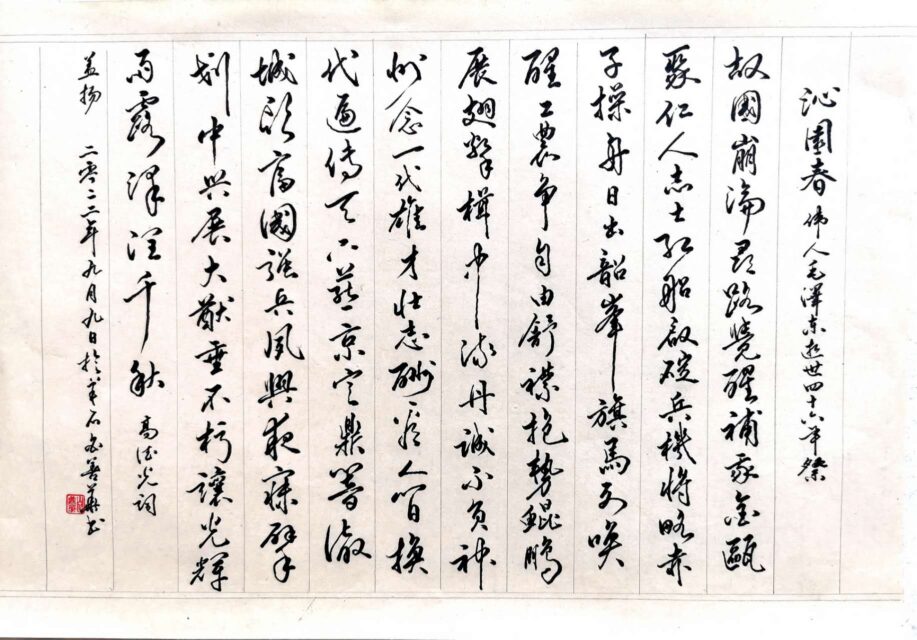 沁園春 偉人毛澤东逝世四十六年祭
故國崩淪尋路覺醒補我金甌
聚仁人志士紅船啟碇兵機將略赤
子操舟日出韶峯旗馬列喚
醒工農争自由舒襟抱勢鯤鵬
展翅擊楫中流丹誠不負神
州念一代雄才壯志酬看人間換
代遍傳天下燕京定鼎響徹
城頭富國強兵夙興夜寐擘
划中興展大猷垂不朽讓光輝
雨露澤潤千秋 高德光詞
二零二二年九月九日於石善華书